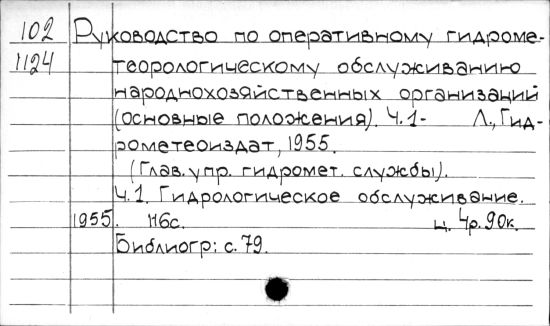 102 Руководство по оперативному гидроме-
1124 теорологическому обслуживанию
народнохозяйственных организаций
(основные положения). Ч.1- Л., Гид-
рометеоиздат, 1955.
(Глав. упр. гидромет. службы).
Ч.1. Гидрологическое обслуживание.
1955. 116с. ц. 4р. 90к.
Библиогр: с. 79.